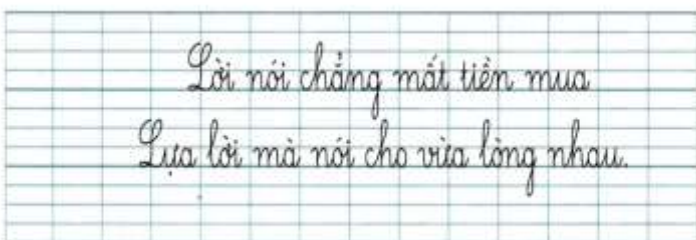 Lời nói chẳng mất tiền mua
Lựa lời mà nói cho vừa lòng nhau.